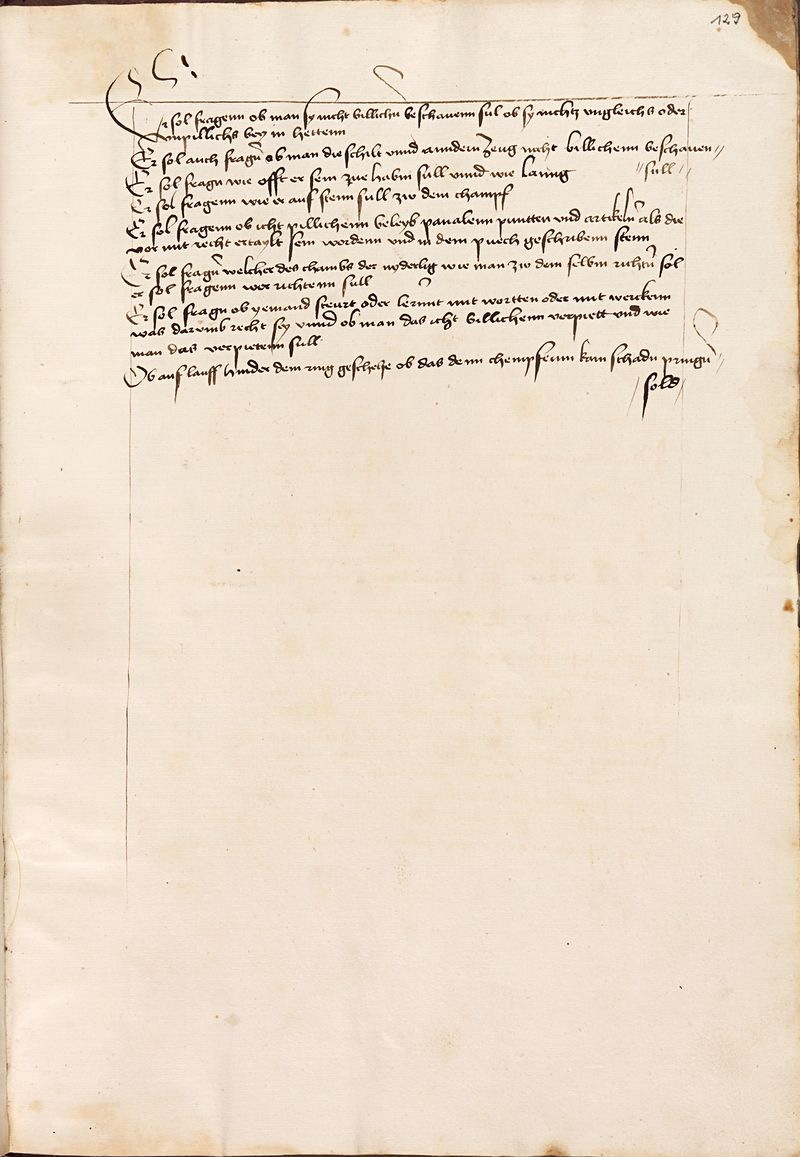 129
Er sol fragenn ob man sy nicht billichn beschauenn sul ob sy nichtz ungleichs oder
unpillichs bey in hettenn
Er sol auch fragn ob man die schilt unnd anndern zeug nicht billichenn beschauen
sull
Er sol fragn wie offt er sein zue habm sull unnd wie lanng
Er sol fragenn wie er auf stenn sull zw dem champf
Er sol fragenn ob icht pillichenn beleyb panalenn puntten und artikeln als die
vor mit recht ertaylt sein wordenn und in dem puech geschribenn stenn
Er sol fragn welcher des chambs der nyderlig wie man zw dem selbm richtn sol
er sol fragenn wer richtenn sull
Er sol fragn ob yemand steurt oder lernnt mit wortten oder mit werckenn
was darumb recht sey unnd ob man das icht billichenn verpiett und wie
man das verpietenn sull
Ob auf lauff hinder dem ring geschehe ob das denn chempfenn kain schadn pringn
sold